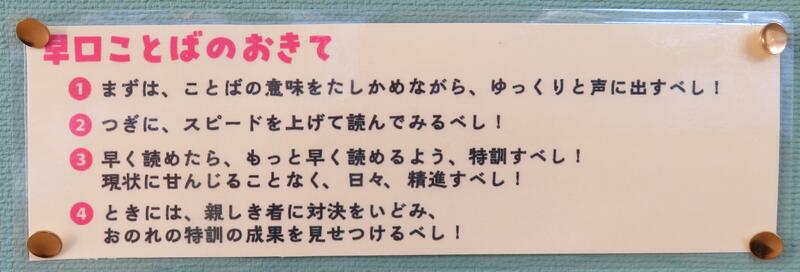 早口ことばのおきて
1 まずは、ことばの意味をたしかめながら、ゆっくりと声に出すべし！
2 つぎに、スピードを上げて読んでみるべし！
3 早く読めたら、もっと早く読めるよう、特訓すべし！
現状に甘んじることなく、日々、精進すべし！
4 ときには、親しき者に対決をいどみ、
おのれの特訓の成果を見せつけるべし！